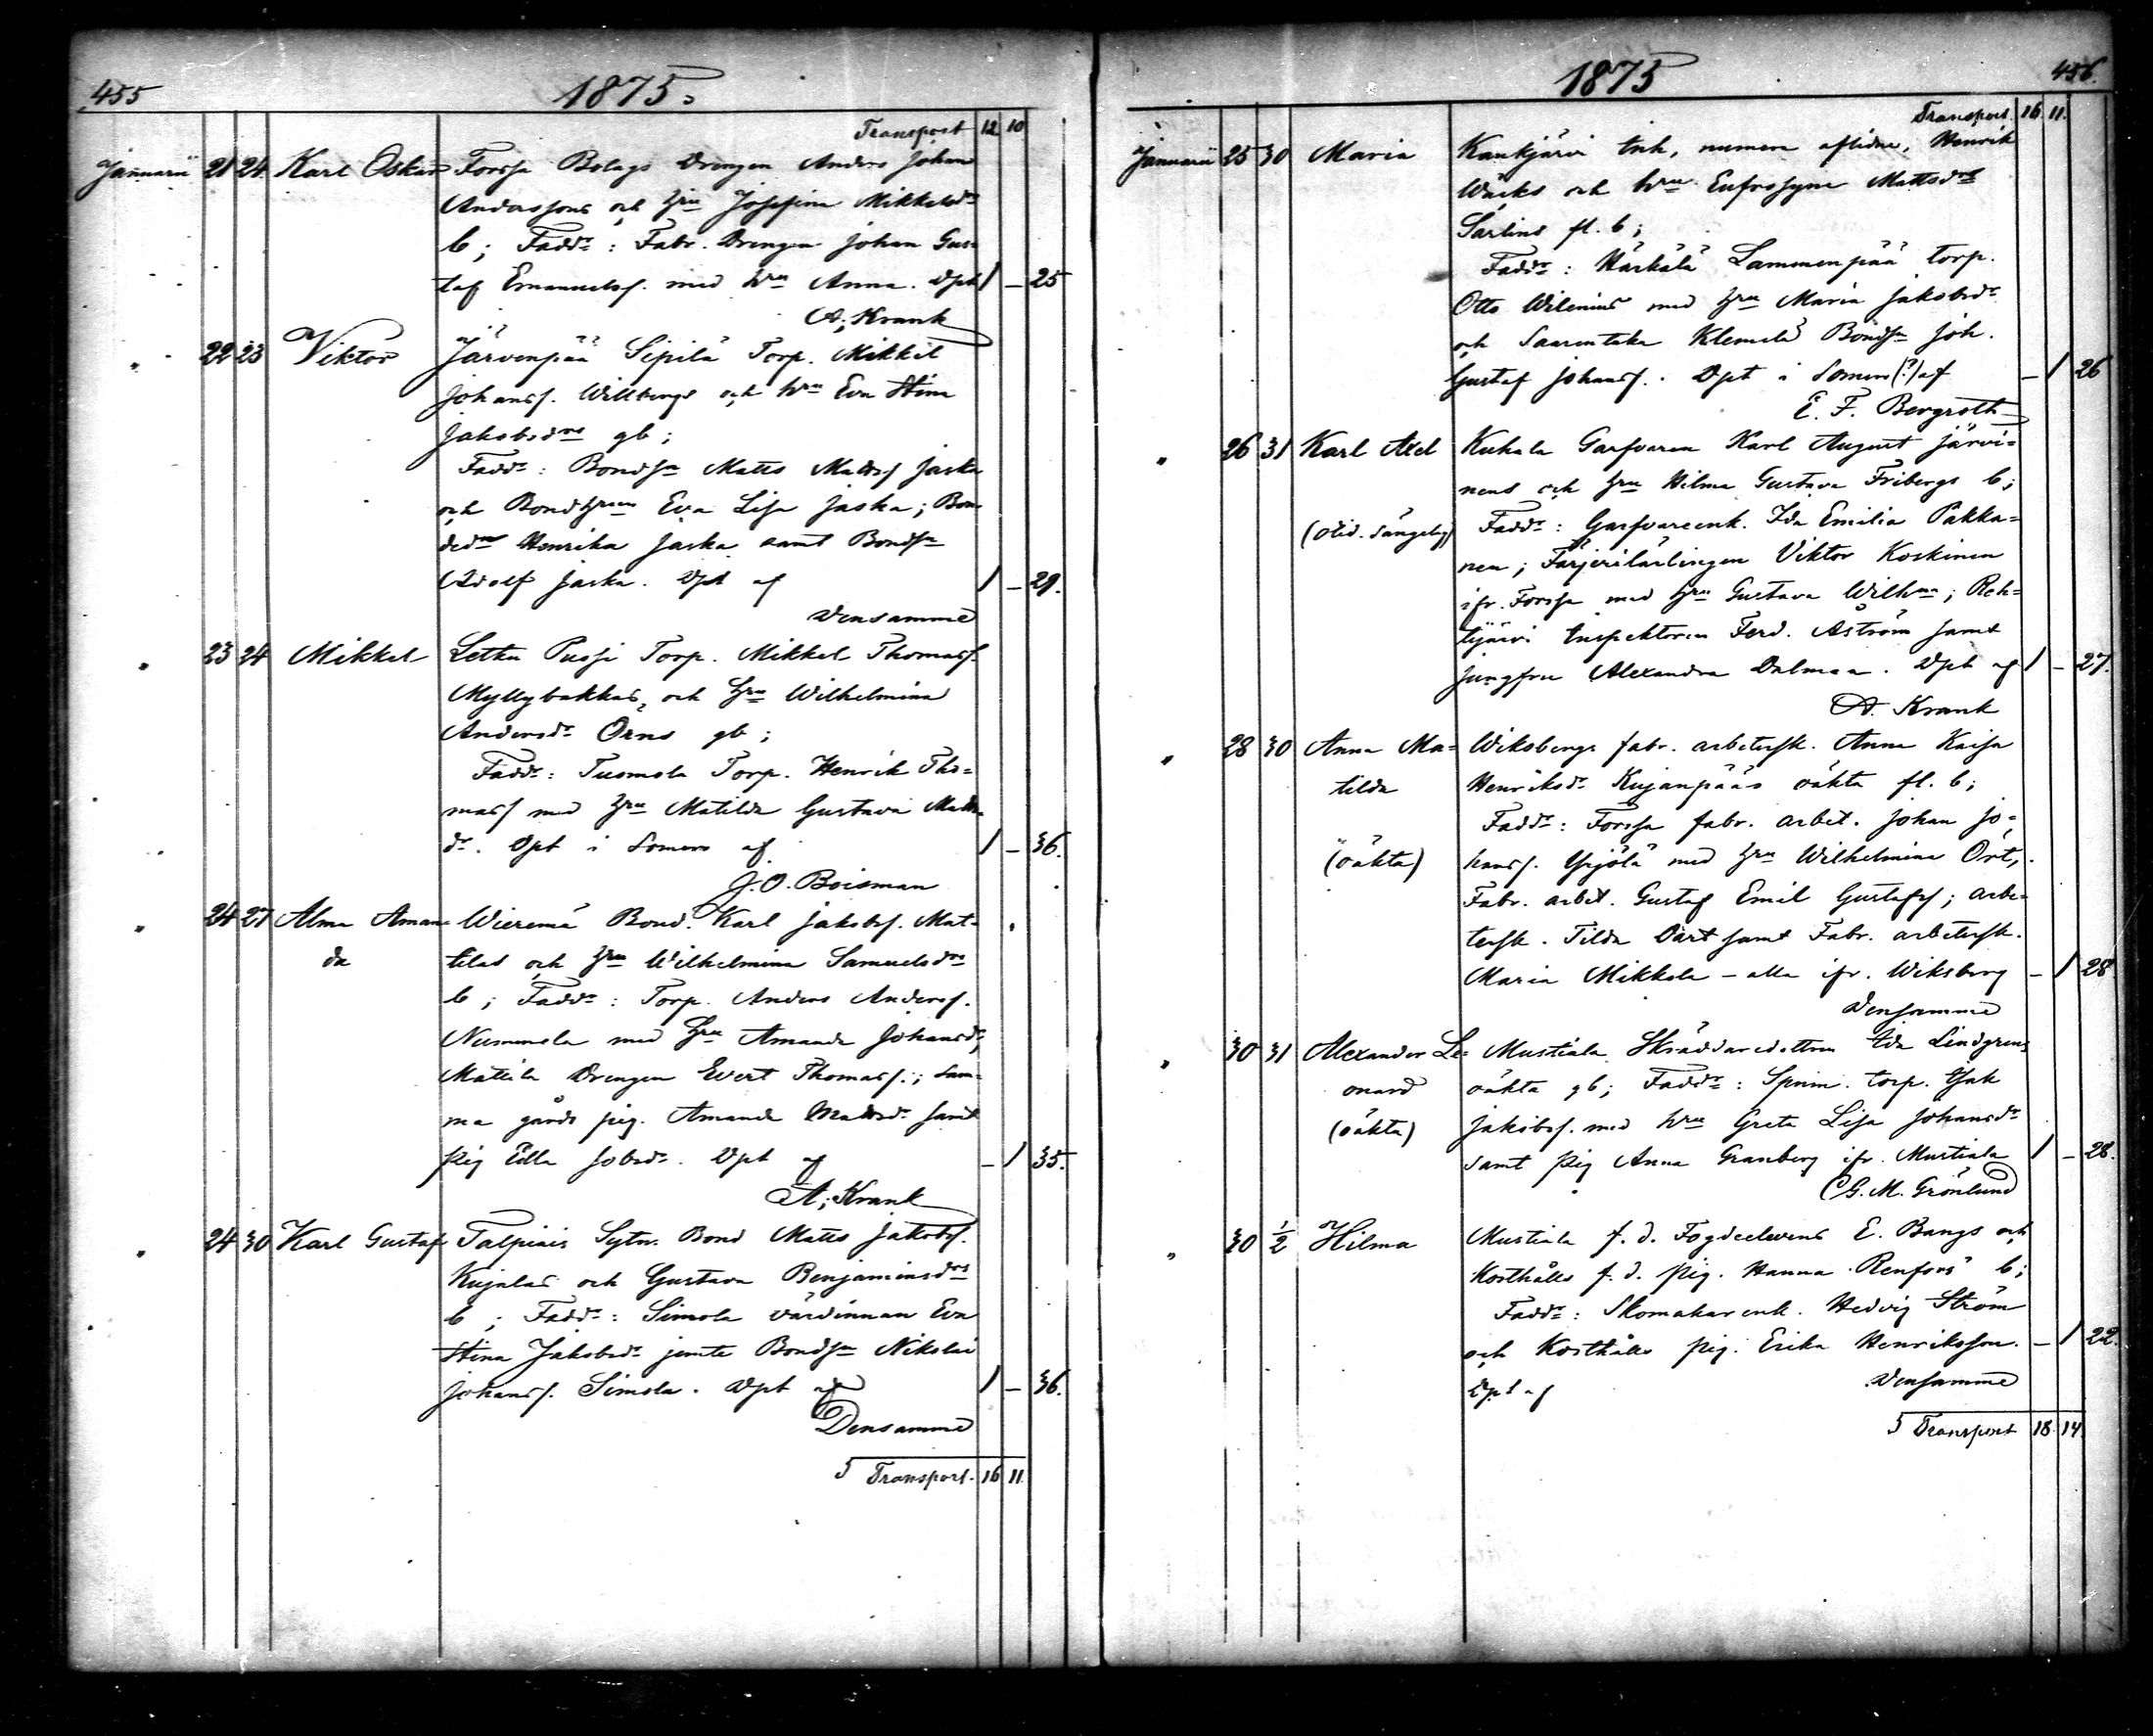 455
1875.
Transport 12 10
Januarii 21 24 Karl Oskar Forssa Bolags Drengen Anders Johan
Anderssons och hru Josefina Mikkelsdr
b; Faddr: Fabr. Drengen Johan Gus-
taf Emanuelsf. med hru Anna. Dpt 1 – 25
A. Krank
" 22 23 Viktor Järvenpää Sipilä Torp. Mikkel
Johansf. Willbergs och hru Eva Stina
Jakobsdrs gb;
Faddr: Bondsn Matts Mattsf Jaska
och Bondhrun Eva Lisa Jaska; Bon-
dedr Henrika Jaska samt Bondsn
Adolf Jaska. Dpt af 1 – 29.
Densamme
" 23 24 Mikkel Letku Pussi Torp. Mikkel Thomasf.
Myllybakkas, och hru Wilhelmina
Andersdr Örns gb;
Faddr: Tuomola Torp. Henrik Tho-
masf med hru Matilda Gustava Matts-
dr. Dpt i Somero af 1 – 36.
J. O. Boisman
" 24 27 Alma Aman- Wieremä Bond. Karl Jakobsf. Mat-
da tilas och hru Wilhelmina Samuelsdrs
b; Faddr: Torp. Anders Andersf.
Nummela med hru Amanda Johansdr,
Mattila Drengen Evert Thomasf.; sam-
ma gårds pig. Amanda Mattsdr samt
Pig Edla Jobsdr. Dpt af – 1 35.
A. Krank
" 24 30 Karl Gustaf Talpiais Sytn. Bond Matts Jakobsf.
Kujalas och Gustava Benjaminsdrs
b; Faddr: Simola värdinnan Eva
Stina Jakobsdr jemte Bondsn Nikolai
Johansf. Simola. Dpt af 1 – 36.
Densamme
5 Transport. 16 11.
1875
456.
Transport. 16 11.
Januarii 25 30 Maria Kaukjärvi Inh, numera aflidne, Henrik
Wäcks och hru Eufrosyne Mattsdrs
Sarlins fl. b;
Faddr: Härkälä Lammenpää torp.
Otto Wilenius med hru Maria Jakobsdr
och Saarentaka Klemelä Bondsn Joh.
Gustaf Johansf. Dpt i Somero (?) af – 1 26
E. F. Bergroth
" 26 31 Karl Axel Kuhala Garfvaren Karl August Järvi-
nens och hru Hilma Gustava Fribergs b;
Faddr: Garfvareenk. Ida Emilia Pakka-
nen; Färjerilärlingen Viktor Koskinen
ifr. Forssa med hru Gustava Wilhma; Reh-
tijärvi Inspektoren Ferd. Åström samt
Jungfru Alexandra Dalman. Dpt af 1 – 27.
A. Krank
" 28 30 Anna Ma- Wiksbergs fabr. arbetersk. Anna Kaisa
tilda Henriksdr Kujanpääs oäkta fl. b;
Faddr: Forssa fabr. arbet. Johan Jo-
(oäkta) hansf. Yrjölä med hru Wilhelmina Ört,
Fabr. arbet. Gustaf Emil Gustafsf; arbe-
tersk. Tilda Därt samt Fabr. arbetersk.
Maria Mikkola – alla ifr. Wiksberg – 1 28
Densamme
" 30 31 Alexander Le- Mustiala Skräddaredottren Ida Lindgrens
onard oäkta gb; Faddr: Spinn. torp. Isak
(oäkta) Jakobsf. med hru Greta Lisa Johansdr
samt Pig Anna Granberg ifr. Mustiala 1 – 28.
G. M. Grönlund
" 30 1/2 Hilma Mustiala f. d. Fogdeelevens E. Bangs och
Kosthålls f. d. Pig. Hanna Renfors b;
Faddr: Skomakarenk. Hedvig Ström
och Kosthålls pig. Erika Henriksson. – 1 22.
Dpt af Densamme
5 Transport 18 14